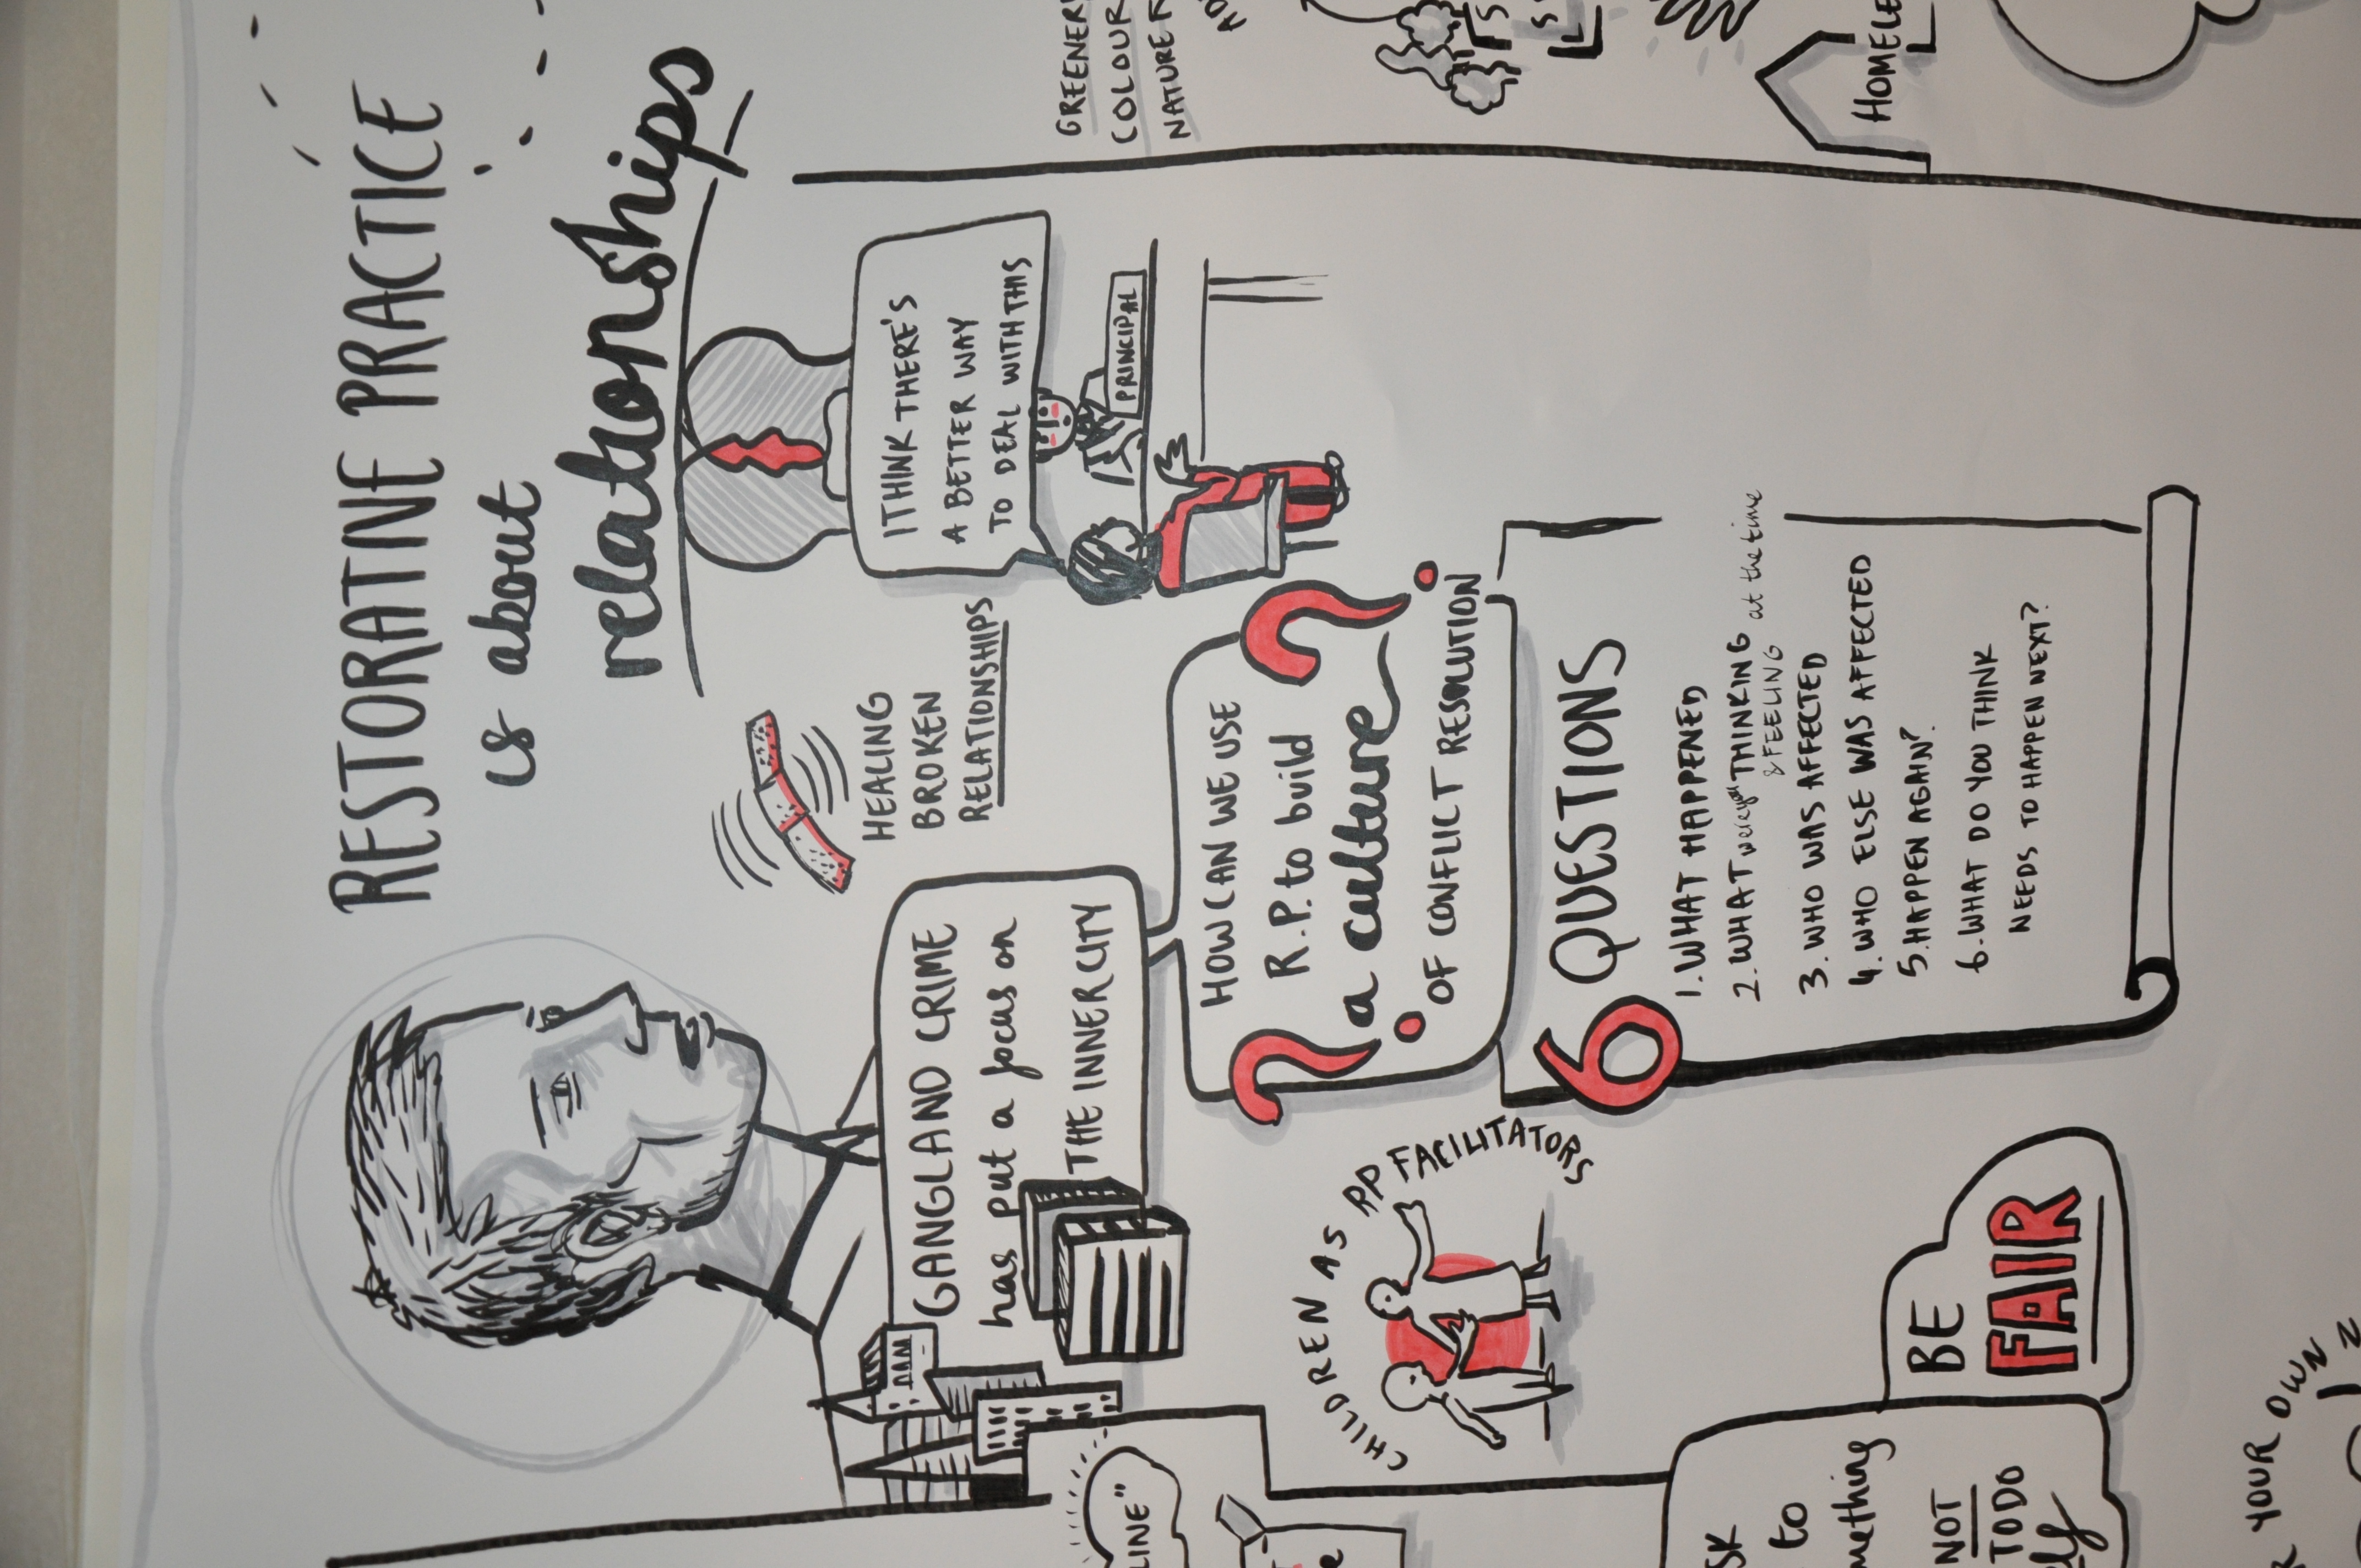 RESTORATIVE PRACTICE
is about
relationships
GANGLAND CRIME
has put a focus on
THE INNER CITY
HEALING
BROKEN
RELATIONSHIPS
I THINK THERE'S
A BETTER WAY
TO DEAL WITH THIS
PRINCIPAL
HOW CAN WE USE
R.P. to build
a culture
OF CONFLICT RESOLUTION
? ?
CHILDREN AS RP FACILITATORS
6 QUESTIONS
1. WHAT HAPPENED
2. WHAT were you THINKING at the time
& FEELING
3. WHO WAS AFFECTED
4. WHO ELSE WAS AFFECTED
5. HAPPEN AGAIN?
6. WHAT DO YOU THINK
NEEDS TO HAPPEN NEXT?
BE
FAIR
LINE"
SK
to
mething
NOT
TO DO
YOUR OWN
GREENER
COLOUR
NATURE
HOMELE